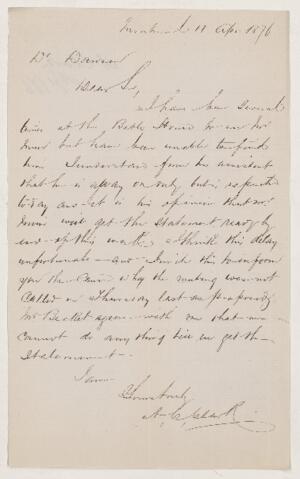 11 Apr 1876
Dr
Dear Sir,
I have been several
times at the Bath House to see Mr
but have been unable to find
him I understand from his assistant
that he is away on duty but is expected
to day and it is his opinion that Mr
will get the Statement ready by
end of this week I think this delay
unfortunate and I wish to inform
you the cause why the meeting was not
Called on Thursday last as proposed
Mr Becket agrees with me that we
cannot do any thing till we get the
Statement
I am
Yours truly
A. C. Clark